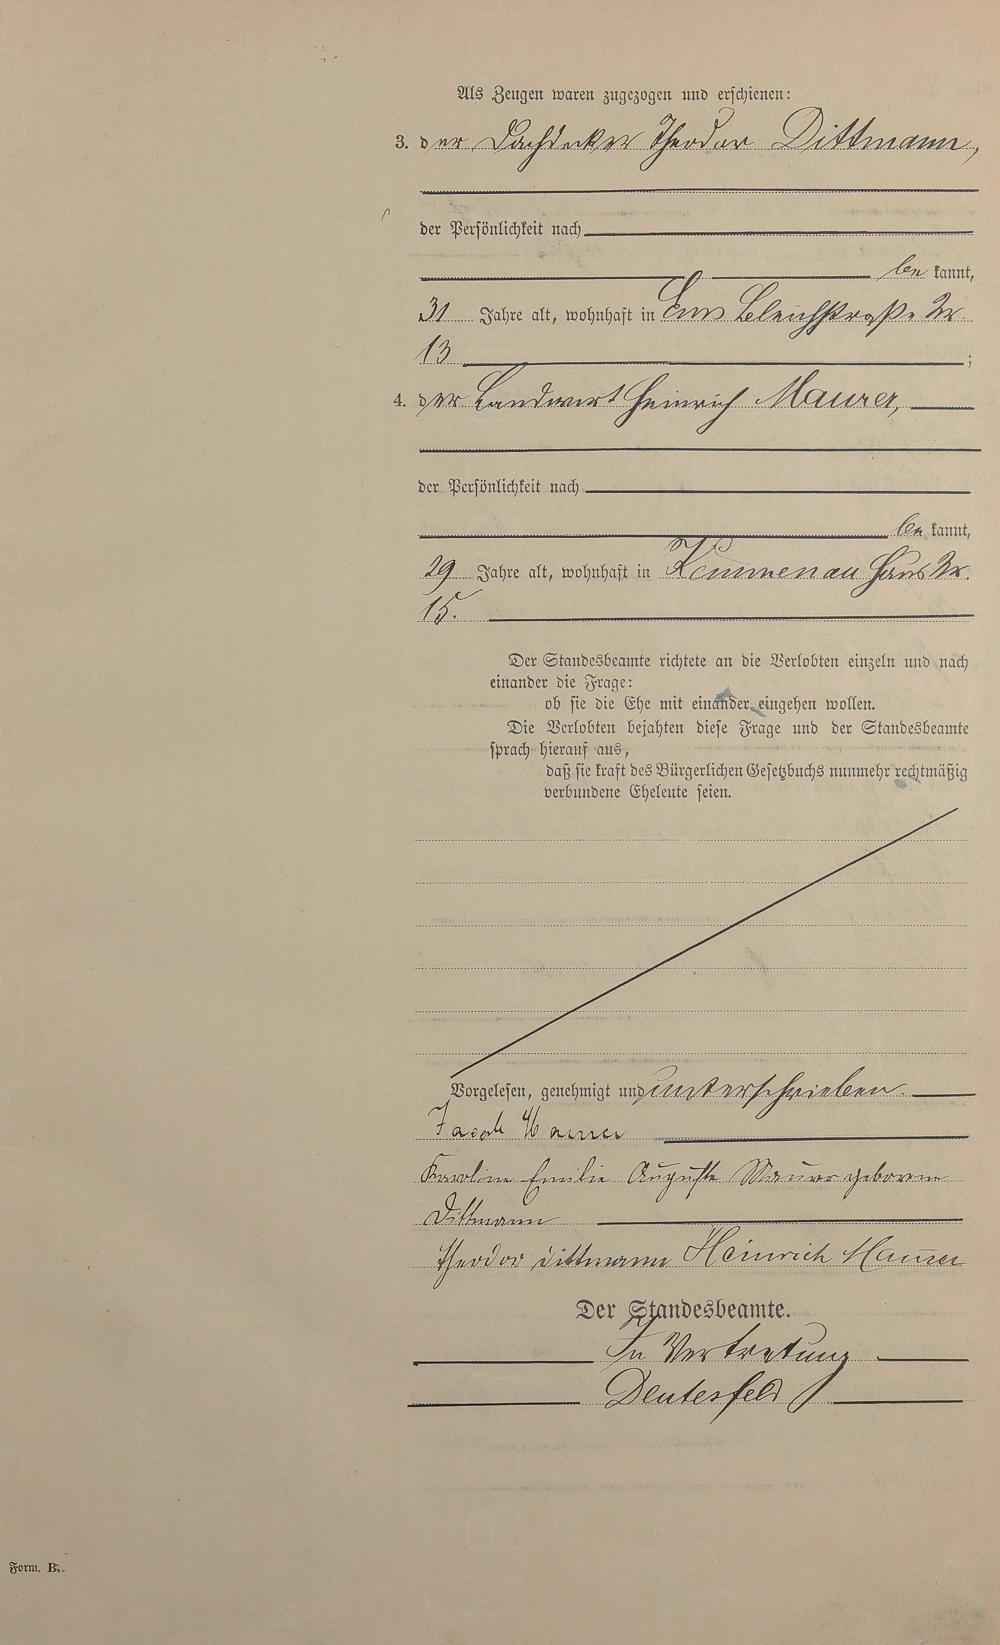 Als Zeugen waren zugezogen und erschienen:
3. der Dachdecker Theodor Dittmann,
der Persönlichkeit nach
be kannt,
31 Jahre alt, wohnhaft in Ems Bleichstraße Nr
13 ;
4. der Landwirt Heinrich Maurer,
der Persönlichkeit nach
be kannt,
29 Jahre alt, wohnhaft in Kemmenau Haus Nr.
15.
Der Standesbeamte richtete an die Verlobten einzeln und nach
einander die Frage:
ob sie die Ehe mit einander eingehen wollen.
Die Verlobten bejahten diese Frage und der Standesbeamte
sprach hierauf aus,
daß sie kraft des Bürgerlichen Gesetzbuchs nunmehr rechtmäßig
verbundene Eheleute seien.
Vorgelesen, genehmigt und unterschrieben.
Jacob Maurer
Karoline Emilie Auguste Maurer geborene
Dittmann
Theodor Dittmann Heinrich Maurer
Der Standesbeamte.
In Vertretung
Deutesfeld
Form. B.